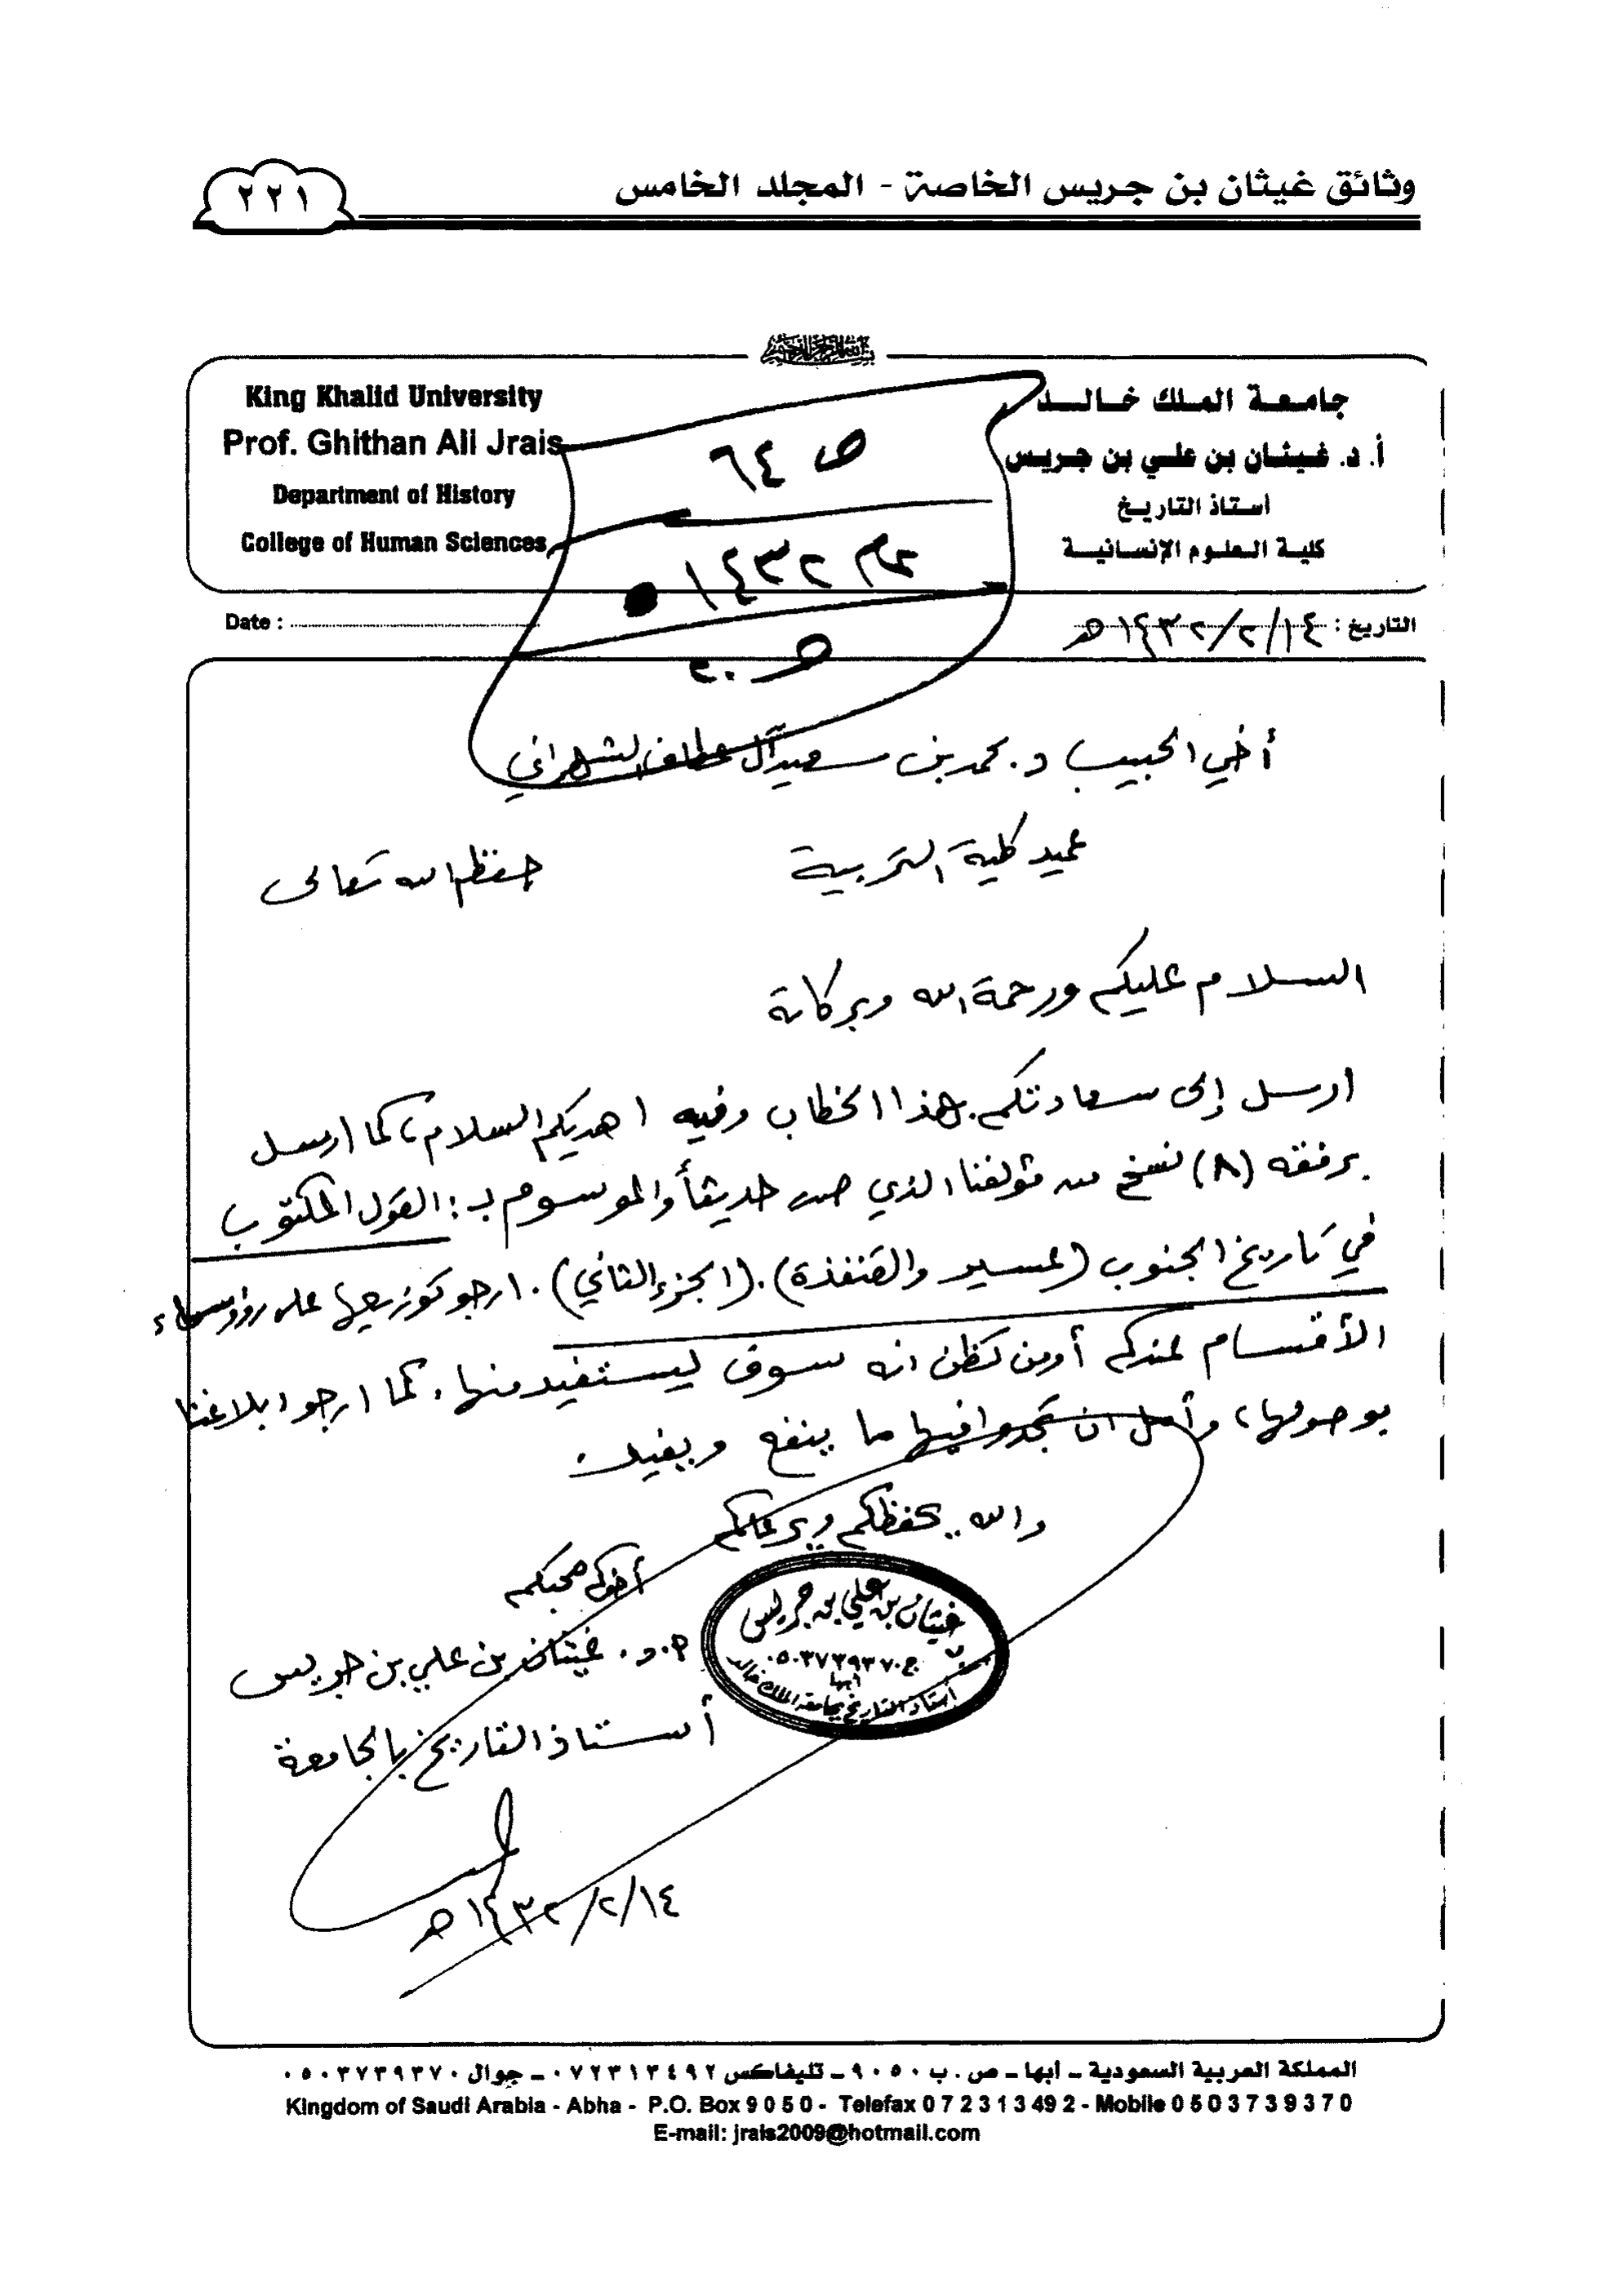 وثائق غيثان بن جريس الخاصة - المجلد الخامس
٢٢١
بسم الله الرحمن الرحيم
جامعة الملك خالد
أ. د. غيثان بن علي بن جريس
أستاذ التاريخ
كلية العلوم الإنسانية
King Khalid University
Prof. Ghithan Ali Jrais
Department of History
College of Human Sciences
ص ٦٤
١٤٣٢
التاريخ : ١٤٣٢/٢/١٤هـ
Date :
أخي الحبيب د. محمد بن سعيد آل عطاف الشهراني
عميد كلية التربية حفظه الله تعالى
السلام عليكم ورحمة الله وبركاته
ارسل إلى سعادتكم هذا الخطاب وفيه اهديكم السلام، كما ارسل
برفقه (٨) نسخ من مؤلفنا الذي صدر حديثاً والموسوم بـ : القول المكتوب
في تاريخ الجنوب (عسير والقنفذة). (الجزء الثاني). ارجو توزيعها على رؤوساء
الأقسام عندكم أو من تظن انه سوف يستفيد منها، كما ارجو ابلاغنا
بوصولها، وأمل ان تجدوا فيها ما ينفع ويفيد.
والله يحفظكم ويرعاكم
أخوكم محبكم
أ. د. غيثان بن علي بن جريس
أستاذ التاريخ بالجامعة
غيثان بن علي بن جريس
ج ٠٥٠٣٧٣٩٣٧٠
أبها
أستاذ التاريخ بجامعة الملك خالد
١٤٣٢/٢/١٤هـ
المملكة العربية السعودية - أبها - ص . ب ٩٠٥٠ - تليفاكس ٠٧٢٣١٣٤٩٢ - جوال ٠٥٠٣٧٣٩٣٧٠
Kingdom of Saudi Arabia - Abha - P.O. Box 9 0 5 0 - Telefax 0 7 2 3 1 3 49 2 - Mobile 0 5 0 3 7 3 9 3 7 0
E-mail: jrais2009@hotmail.com